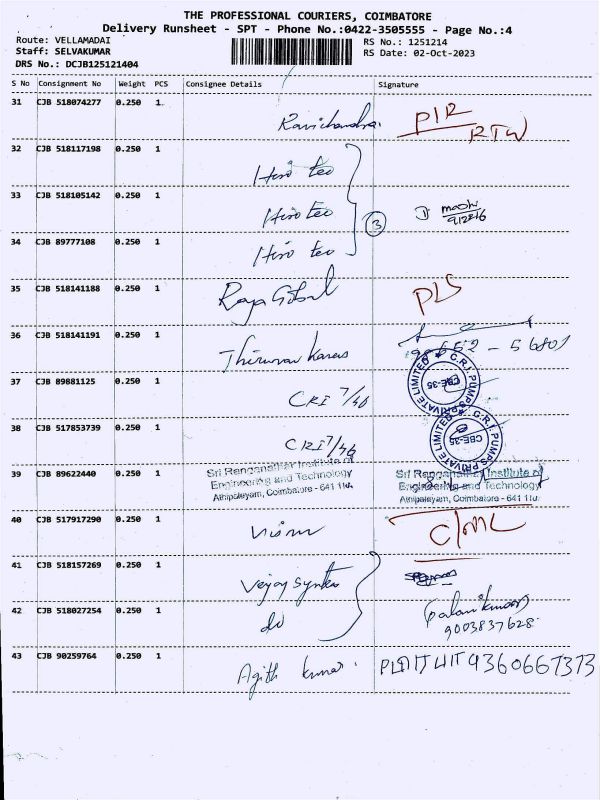 THE PROFESSIONAL COURIERS, COIMBATORE
Delivery Runsheet - SPT - Phone No.:0422-3505555 - Page No.:4
Route: VELLAMADAI
RS No.: 1251214
Staff: SELVAKUMAR
RS Date: 02-Oct-2023
DRS No.: DCJB125121404
S No Consignment No Weight PCS Consignee Details Signature
31 CJB 518074277 0.250 1
Ravichandra
RTW
32 CJB 518117198 0.250 1
Hiro teo
33 CJB 518105142 0.250 1
Hiro teo
3
34 CJB 89777108 0.250 1
Hiro teo
35 CJB 518141188 0.250 1
Raja Gobal
36 CJB 518141191 0.250 1
37 CJB 89881125 0.250 1
CRI 7/46
C.R.I. PUMPS PRIVATE LIMITED
CBE-35
38 CJB 517853739 0.250 1
CRI 7/46
C.R.I. PUMPS PRIVATE LIMITED
CBE-35
39 CJB 89622440 0.250 1
Sri Ranganathar Institute of
Engineering and Technology
Athipalayam, Coimbatore - 641 110.
Sri Ranganathar Institute of
Engineering and Technology
Athipalayam, Coimbatore - 641 110.
40 CJB 517917290 0.250 1
41 CJB 518157269 0.250 1
42 CJB 518027254 0.250 1
do
9003837628
43 CJB 90259764 0.250 1
Agith kumar.
9360667373